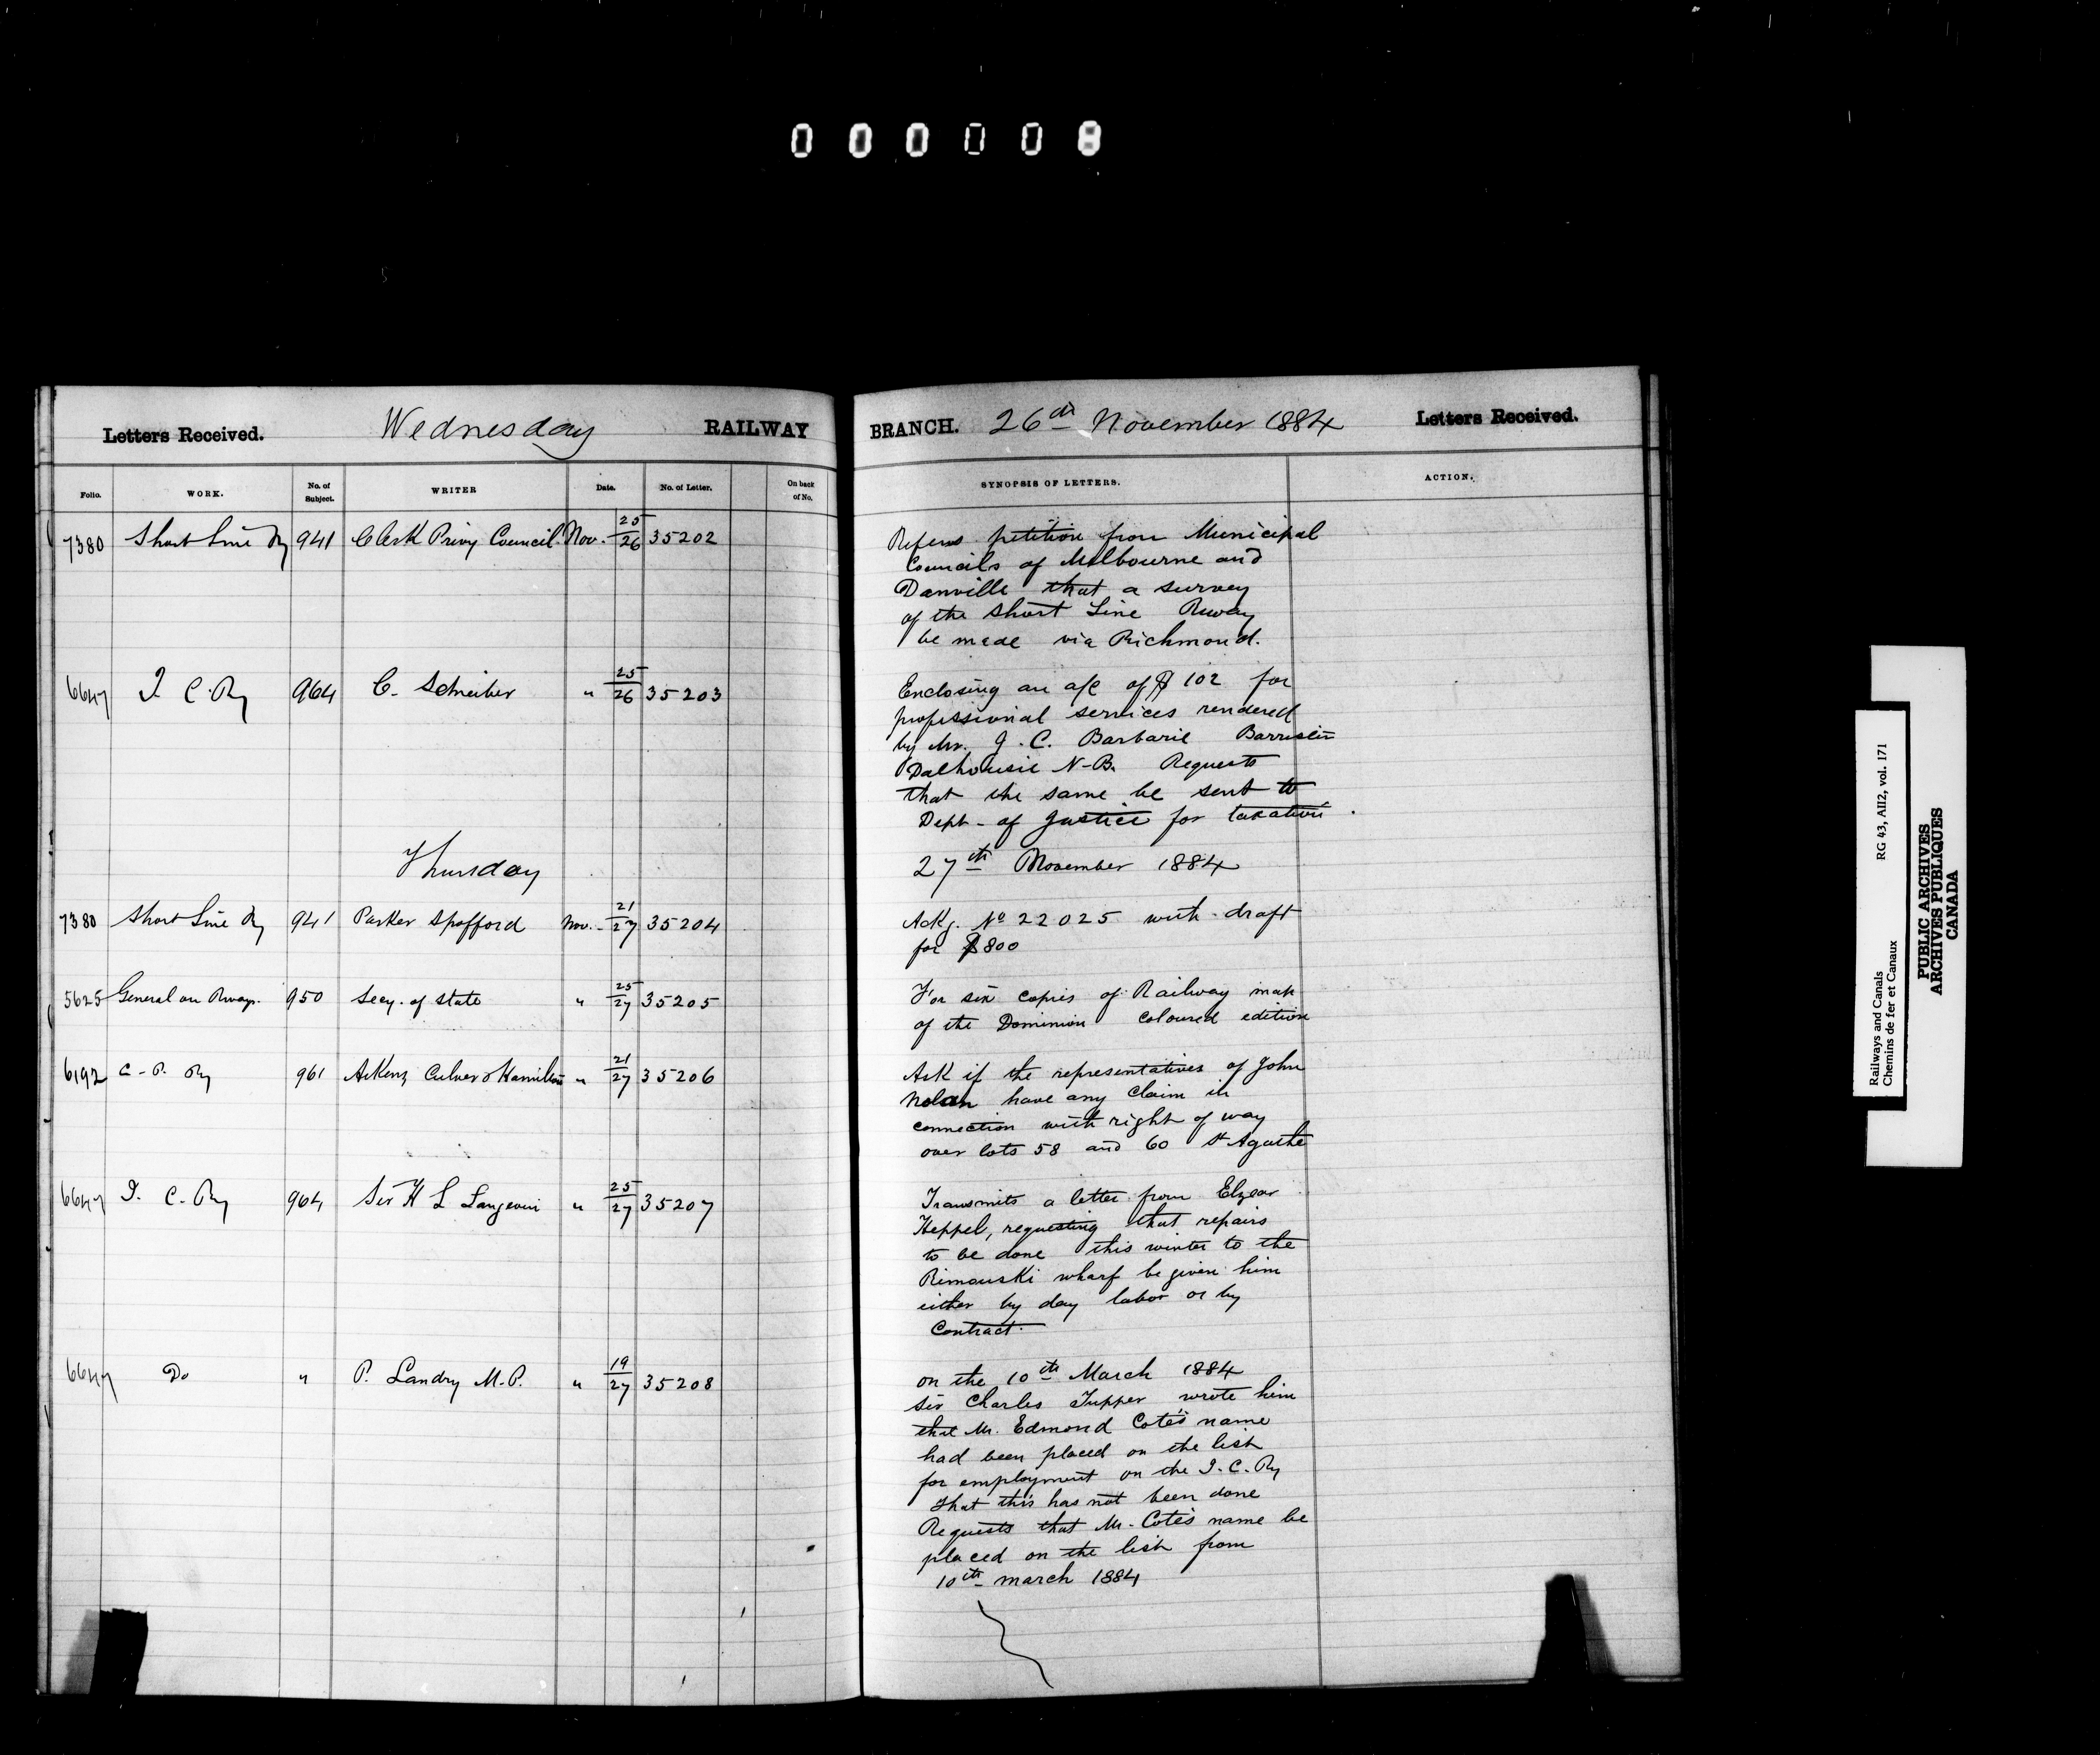 000008
Letters Received. Wednesday RAILWAY BRANCH. 26th November 1884 Letters Received.
Folio. WORK. No. of Subject. WRITER Date. No. of Letter. On back of No. SYNOPSIS OF LETTERS. ACTION.
7380 Short Line Ry 941 Clerk Privy Council Nov. 25/26 35202
Refers petition from Municipal
Councils of Melbourne and
Danville that a survey
of the Short Line Rway
be made via Richmond.
6647 I. C. Ry 964 C. Schreiber " 25/26 35203
Enclosing an a/c of $102 for
professional services rendered
by Mr. J. C. Barbarie Barrister
Dalhousie N-B. Requests
that the same be sent to
Dept. of Justice for taxation.
Thursday 27th November 1884
7380 Short Line Ry 941 Parker Spofford Nov. 21/27 35204
Ackg. No 22025 with draft
for $800
5625 General on Rways. 950 Secy. of State " 25/27 35205
For six copies of Railway map
of the Dominion Coloured edition
6192 C. P. Ry 961 Aikens Culver & Hamilton " 21/27 35206
Ask if the representatives of John
Nolan have any claim in
connection with right of way
over lots 58 and 60 St Agathe
6647 I. C. Ry 964 Sir H L Langevin " 25/27 35207
Transmits a letter from Elzear
Heppel, requesting that repairs
to be done this winter to the
Rimouski wharf be given him
either by day labor or by
Contract.
6647 Do " P. Landry M.P. " 19/27 35208
on the 10th March 1884
Sir Charles Tupper wrote him
that Mr. Edmond Cote's name
had been placed on the list
for employment on the I. C. Ry
that this has not been done
Requests that Mr. Cote's name be
placed on the list from
10th March 1884
Railways and Canals RG 43, AII2, vol. 171
Chemins de fer et Canaux
PUBLIC ARCHIVES
ARCHIVES PUBLIQUES
CANADA